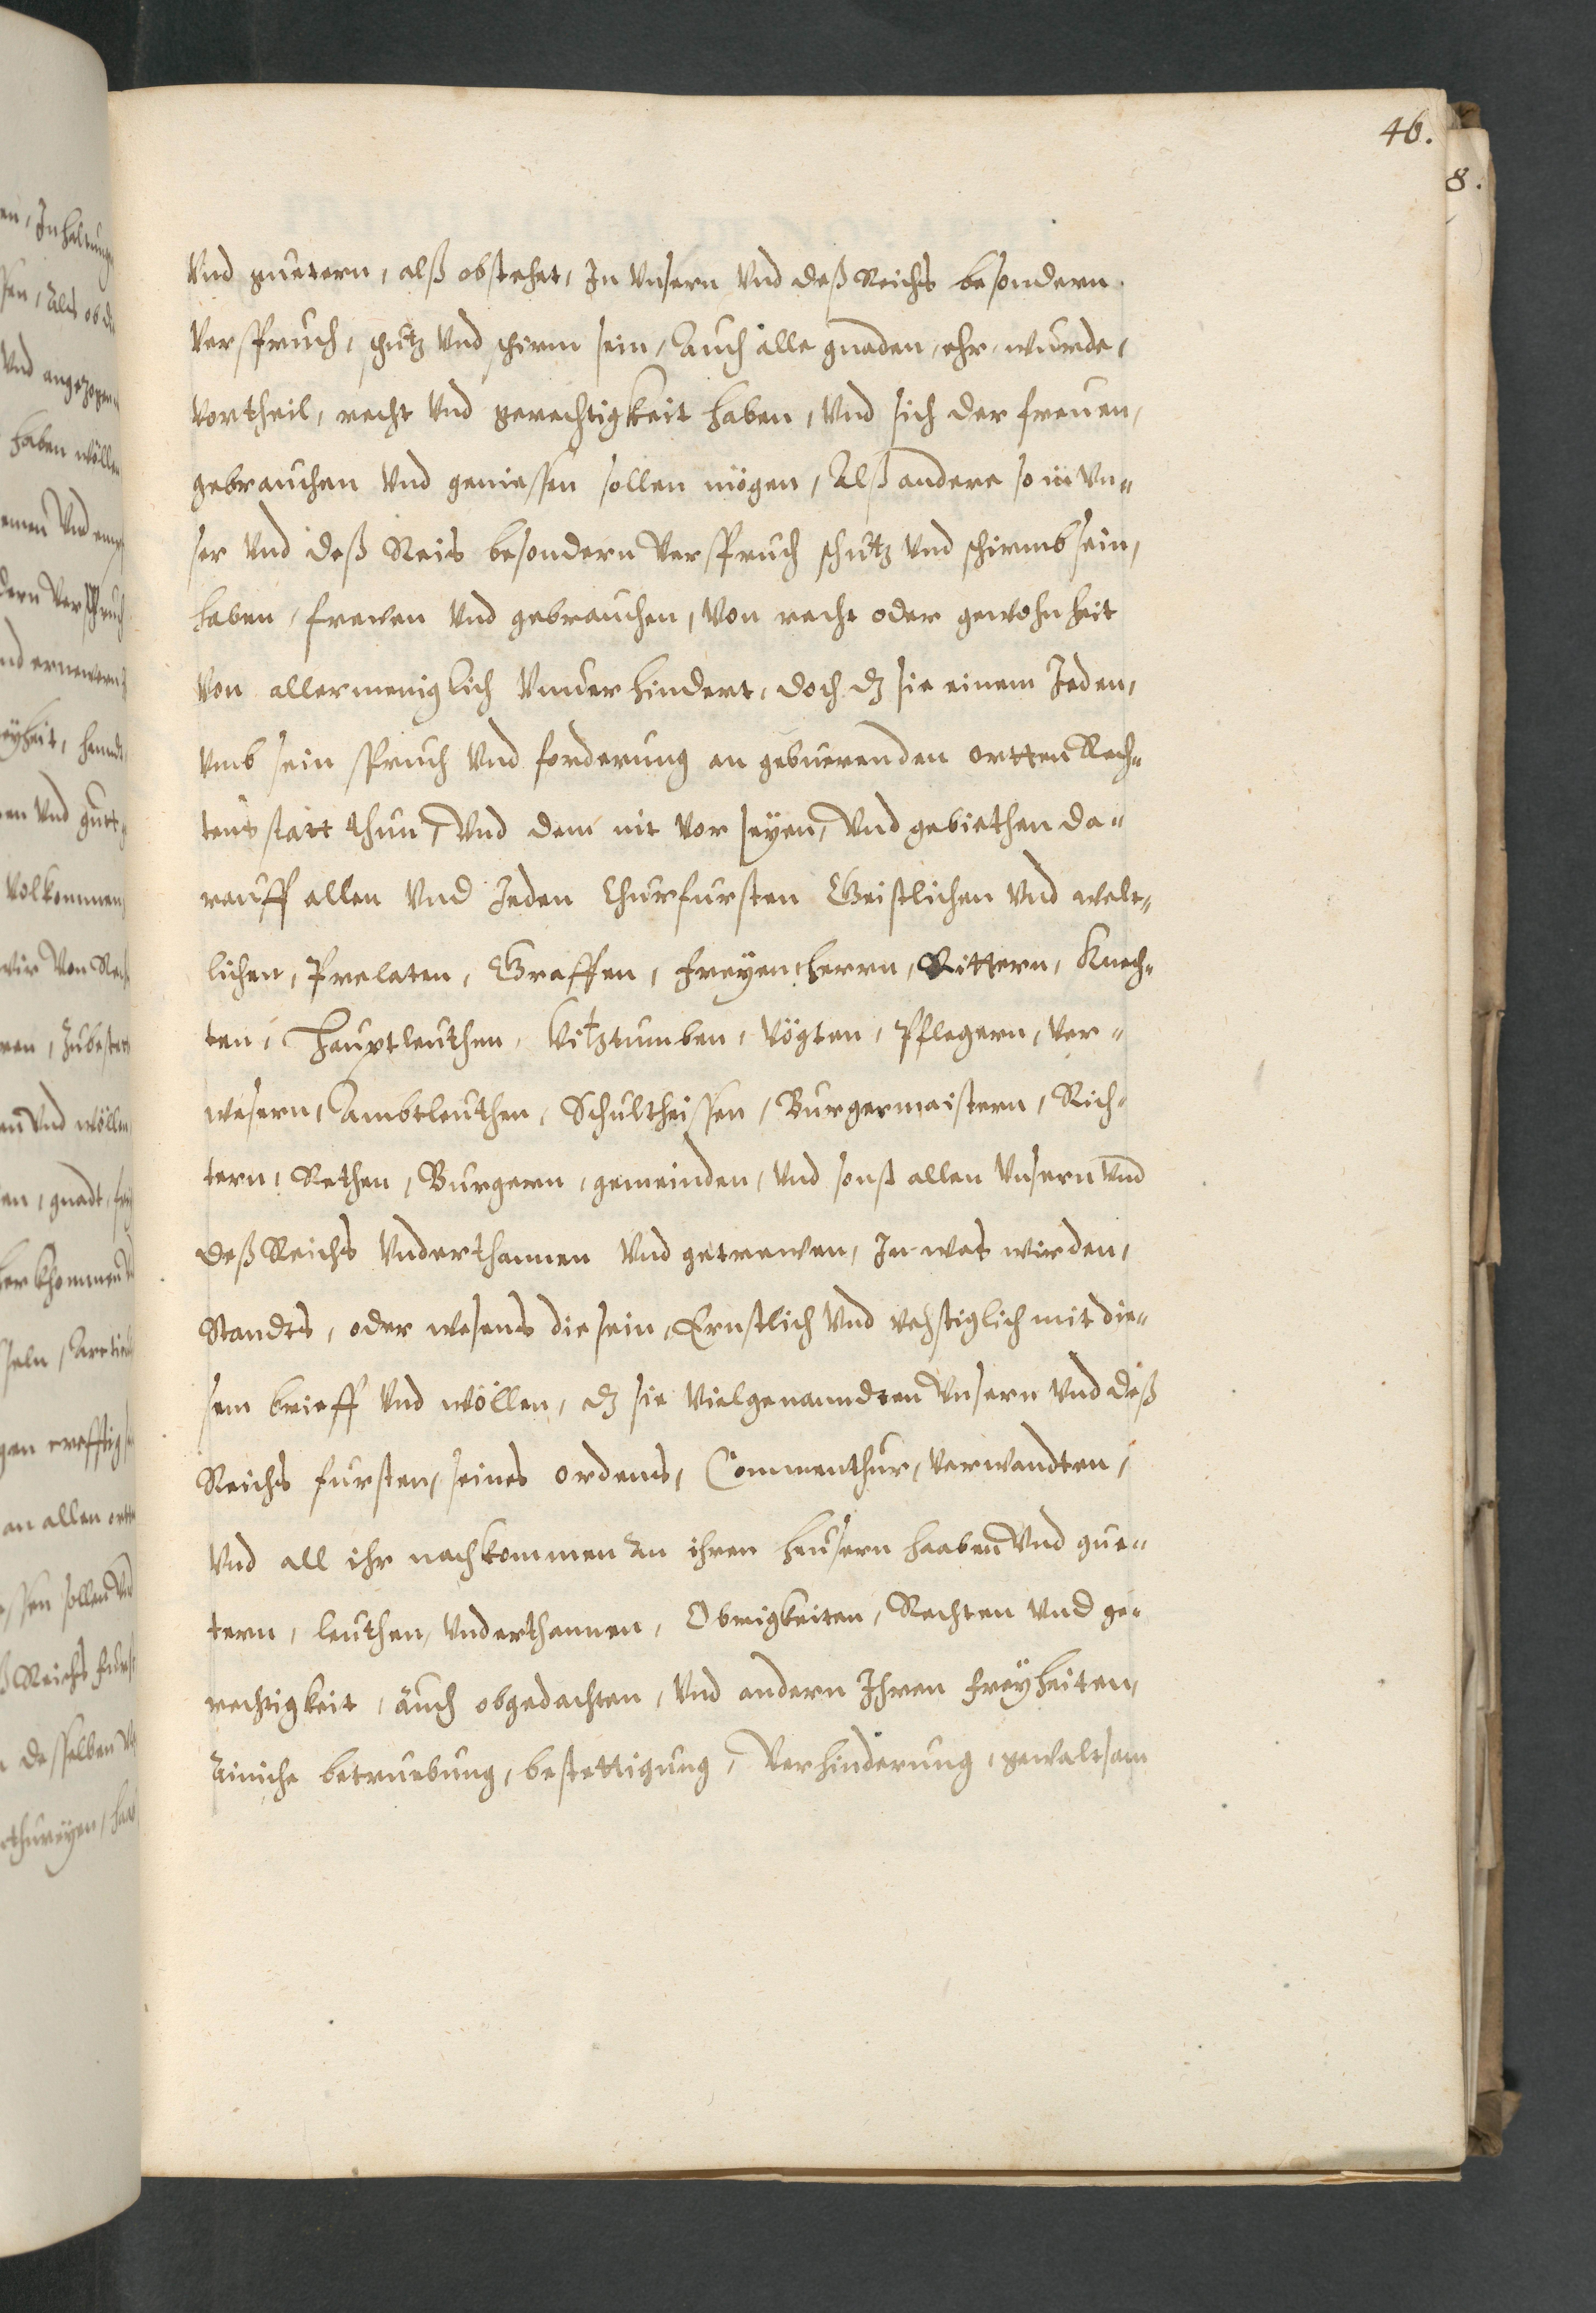 46.
8.
Vnd guetern, alß obstehet, In Vnsern Vnd deß Reichs besondern
Verspruch, schutz Vnd schirm sein, Auch alle gnaden, ehr, wurde,
Vortheil, recht Vnd gerechtigkeit haben, Vnd sich der freuen,
gebrauchen Vnd geniessen sollen mögen, Alß andere so in Vn-
ser Vnd deß Reis besondern Verspruch schutz Vnd schirmb sein,
haben, frewen Vnd gebrauchen, Von recht oder gewohnheit
Von allermeniglich Vnuerhindert, doch dz sie einem Jeden,
Vmb sein spruch Vnd forderung an gebuerenden ortten Rech-
tens statt thun, Vnd dem nit Vor seyen, Vnd gebiethen da-
rauff allen Vnd Jeden Churfursten Geistlichen Vnd welt-
lichen, Prelaten, Graffen, freyen herrn, Rittern, Knech-
ten, Hauptleuthen, Vitztumben, Vögten, Pflegern, Ver-
wesern, Ambtleuthen, Schultheissen, Burgermaistern, Rich-
tern, Rethen, Burgern, gemeinden, Vnd sonst allen Vnsern Vnd
deß Reichs Vnderthannen Vnd getrewen, In was wirden,
Standts, oder wesens die sein, Ernstlich Vnd vehstiglich mit die-
sem brieff Vnd wöllen, dz sie Vielgenanndten Vnsern Vnd deß
Reichs fursten, seines ordens, Commenthur, Verwandten,
Vnd all ihr nachkommen An ihren heusern haaben Vnd gue-
tern, leuthen, Vnderthannen, Obrigkeiten, Rechten Vnd ge-
rechtigkeit, auch obgedachten, Vnd andern Ihren freyheiten,
Ainiche betruebung, bestettigung, Verhinderung, gewaltsam